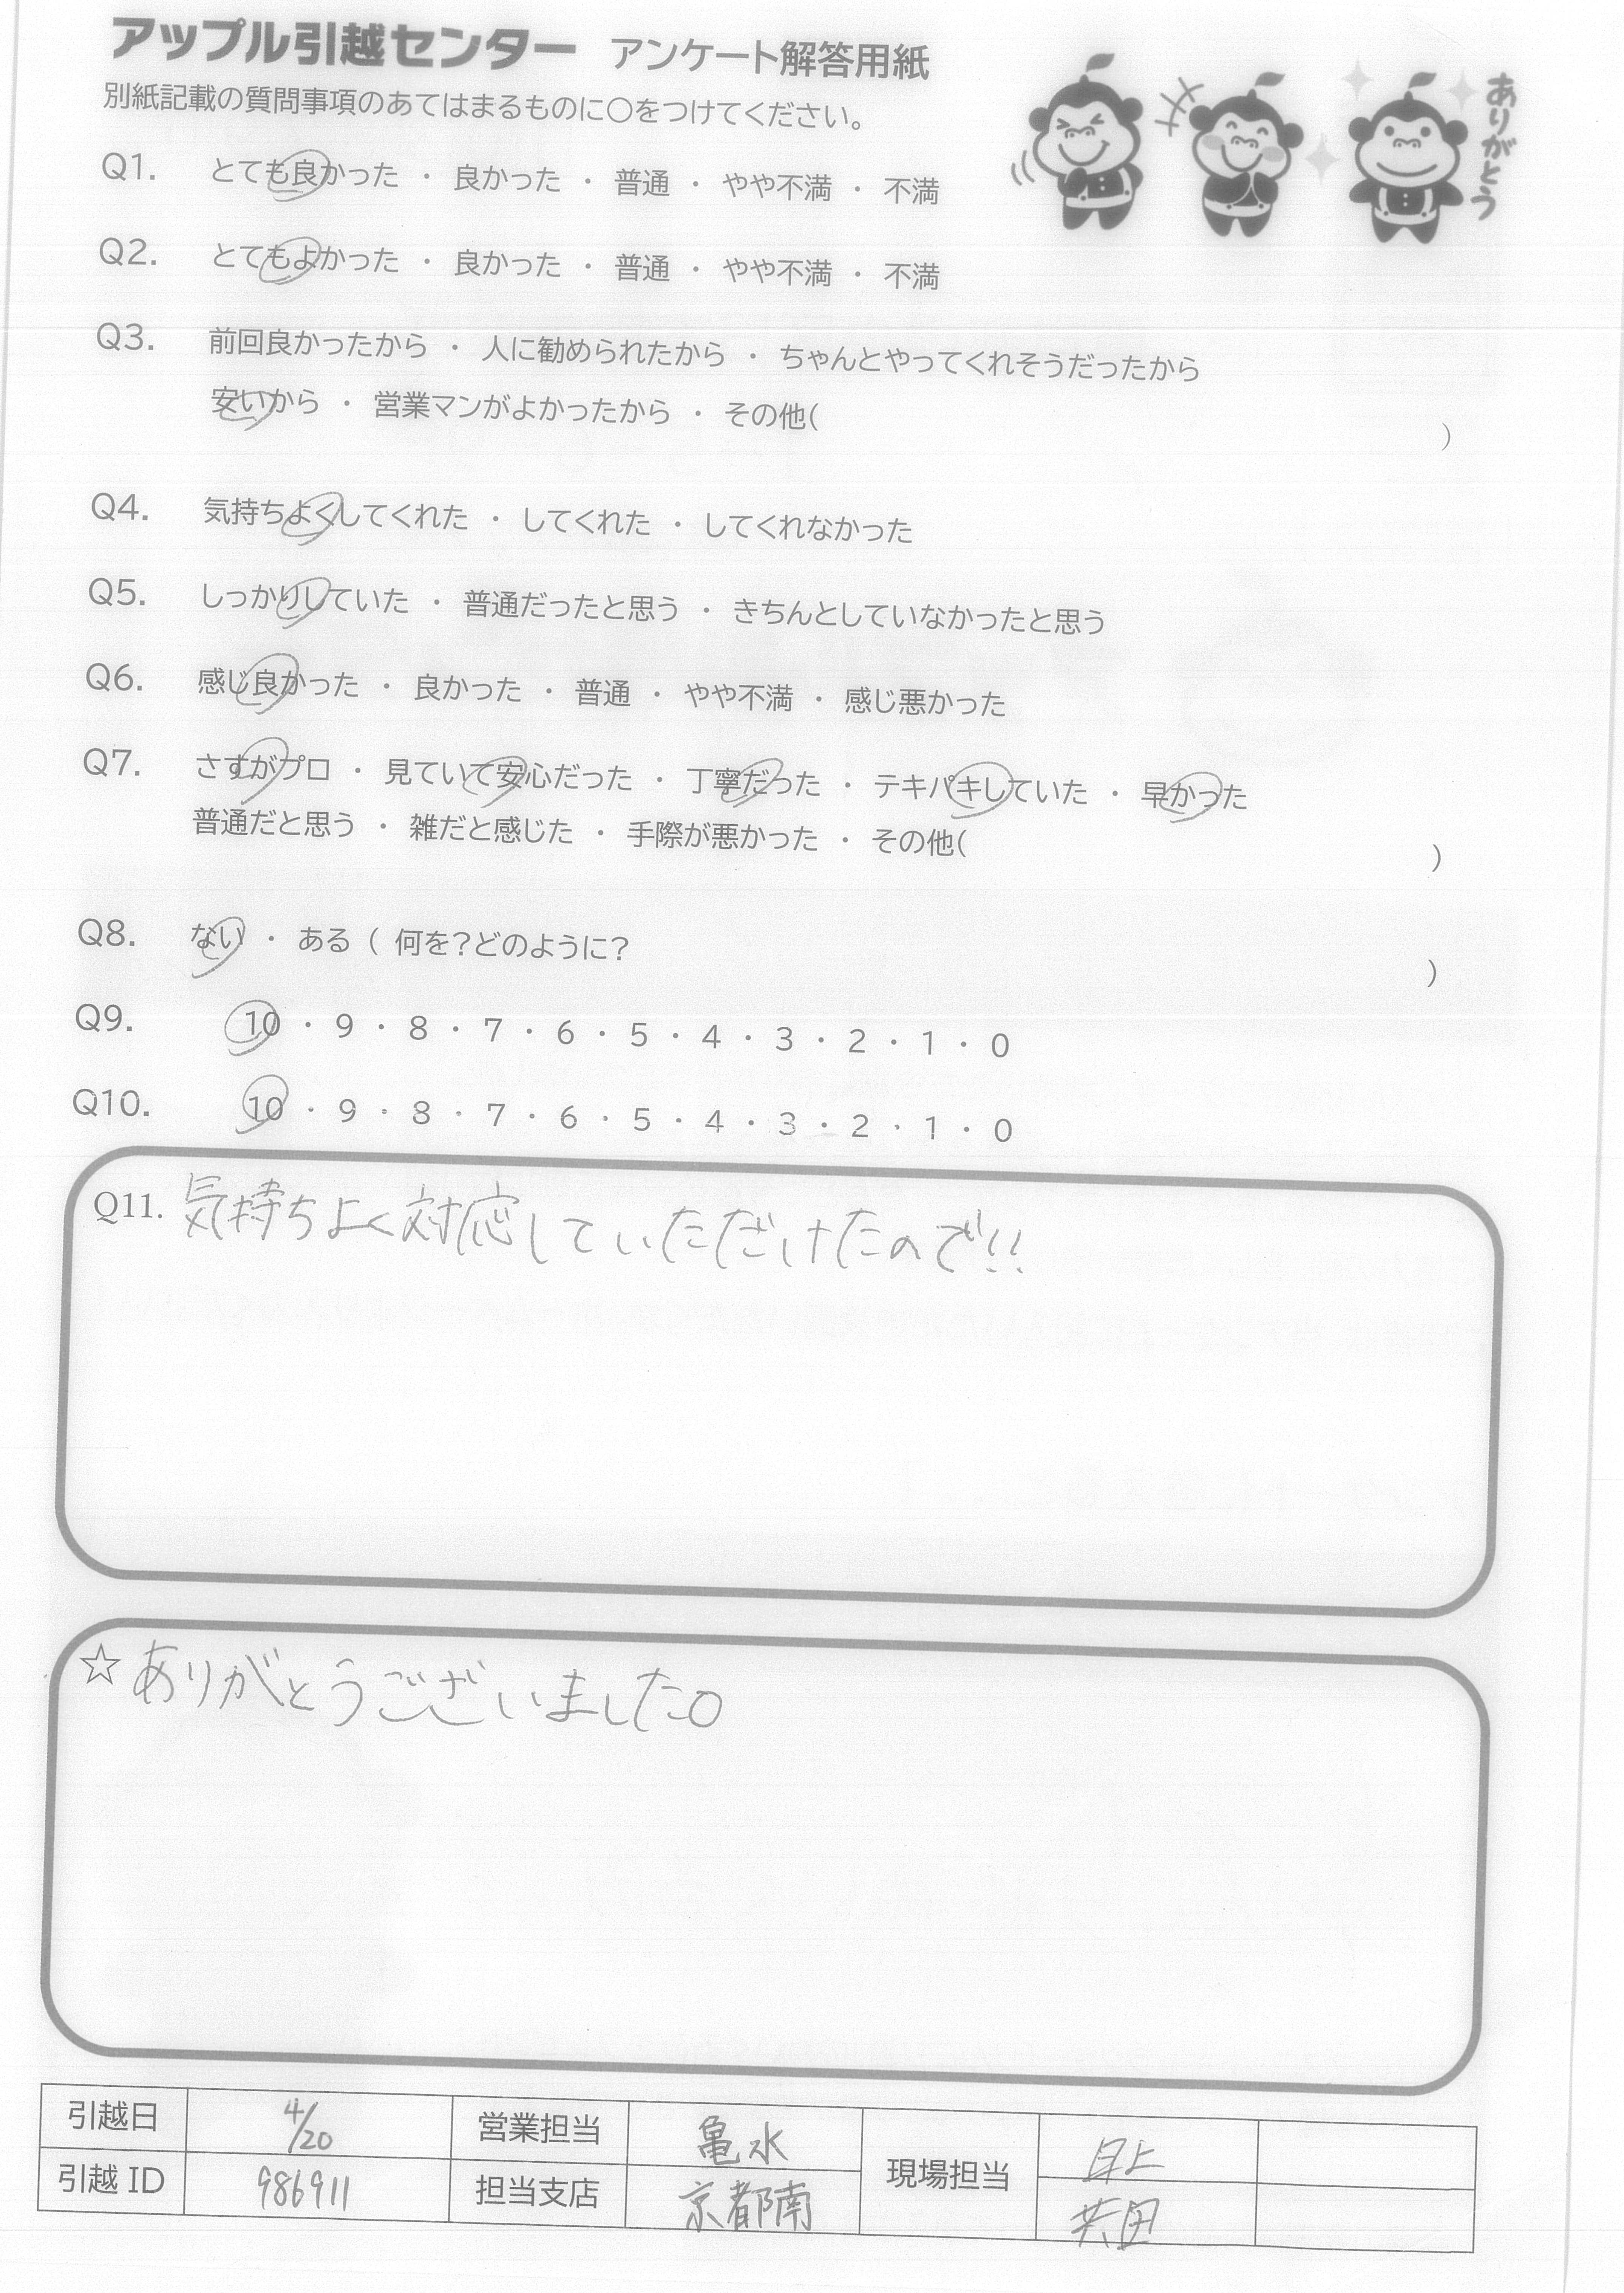 アップル引越センター アンケート解答用紙
別紙記載の質問事項のあてはまるものに○をつけてください。
ありがとう
Q1. とても良かった ・ 良かった ・ 普通 ・ やや不満 ・ 不満
Q2. とてもよかった ・ 良かった ・ 普通 ・ やや不満 ・ 不満
Q3. 前回良かったから ・ 人に勧められたから ・ ちゃんとやってくれそうだったから
安いから ・ 営業マンがよかったから ・ その他( )
Q4. 気持ちよくしてくれた ・ してくれた ・ してくれなかった
Q5. しっかりしていた ・ 普通だったと思う ・ きちんとしていなかったと思う
Q6. 感じ良かった ・ 良かった ・ 普通 ・ やや不満 ・ 感じ悪かった
Q7. さすがプロ ・ 見ていて安心だった ・ 丁寧だった ・ テキパキしていた ・ 早かった
普通だと思う ・ 雑だと感じた ・ 手際が悪かった ・ その他( )
Q8. ない ・ ある ( 何を?どのように? )
Q9. 10 ・ 9 ・ 8 ・ 7 ・ 6 ・ 5 ・ 4 ・ 3 ・ 2 ・ 1 ・ 0
Q10. 10 ・ 9 ・ 8 ・ 7 ・ 6 ・ 5 ・ 4 ・ 3 ・ 2 ・ 1 ・ 0
Q11. 気持ちよく対応していただけたので!!
☆ ありがとうございました。
引越日 4/20 営業担当 亀水 現場担当
引越 ID 986911 担当支店 京都南